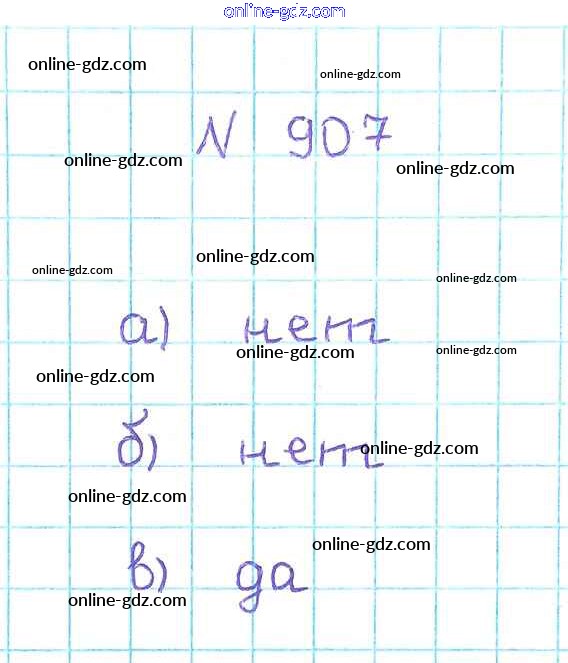 online-gdz.com
online-gdz.com
online-gdz.com
N 907
online-gdz.com
online-gdz.com
online-gdz.com
online-gdz.com
online-gdz.com
а) нет
online-gdz.com
online-gdz.com
online-gdz.com
б) нет
online-gdz.com
online-gdz.com
online-gdz.com
в) да
online-gdz.com